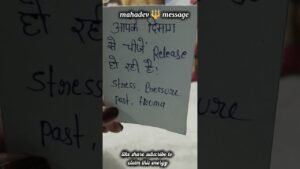 mahadev 🔱 message
आपके दिमाग
से चीजें Release
हो रही है!
Stress Pressure
past, troma
like share subscribe to
claim this energy